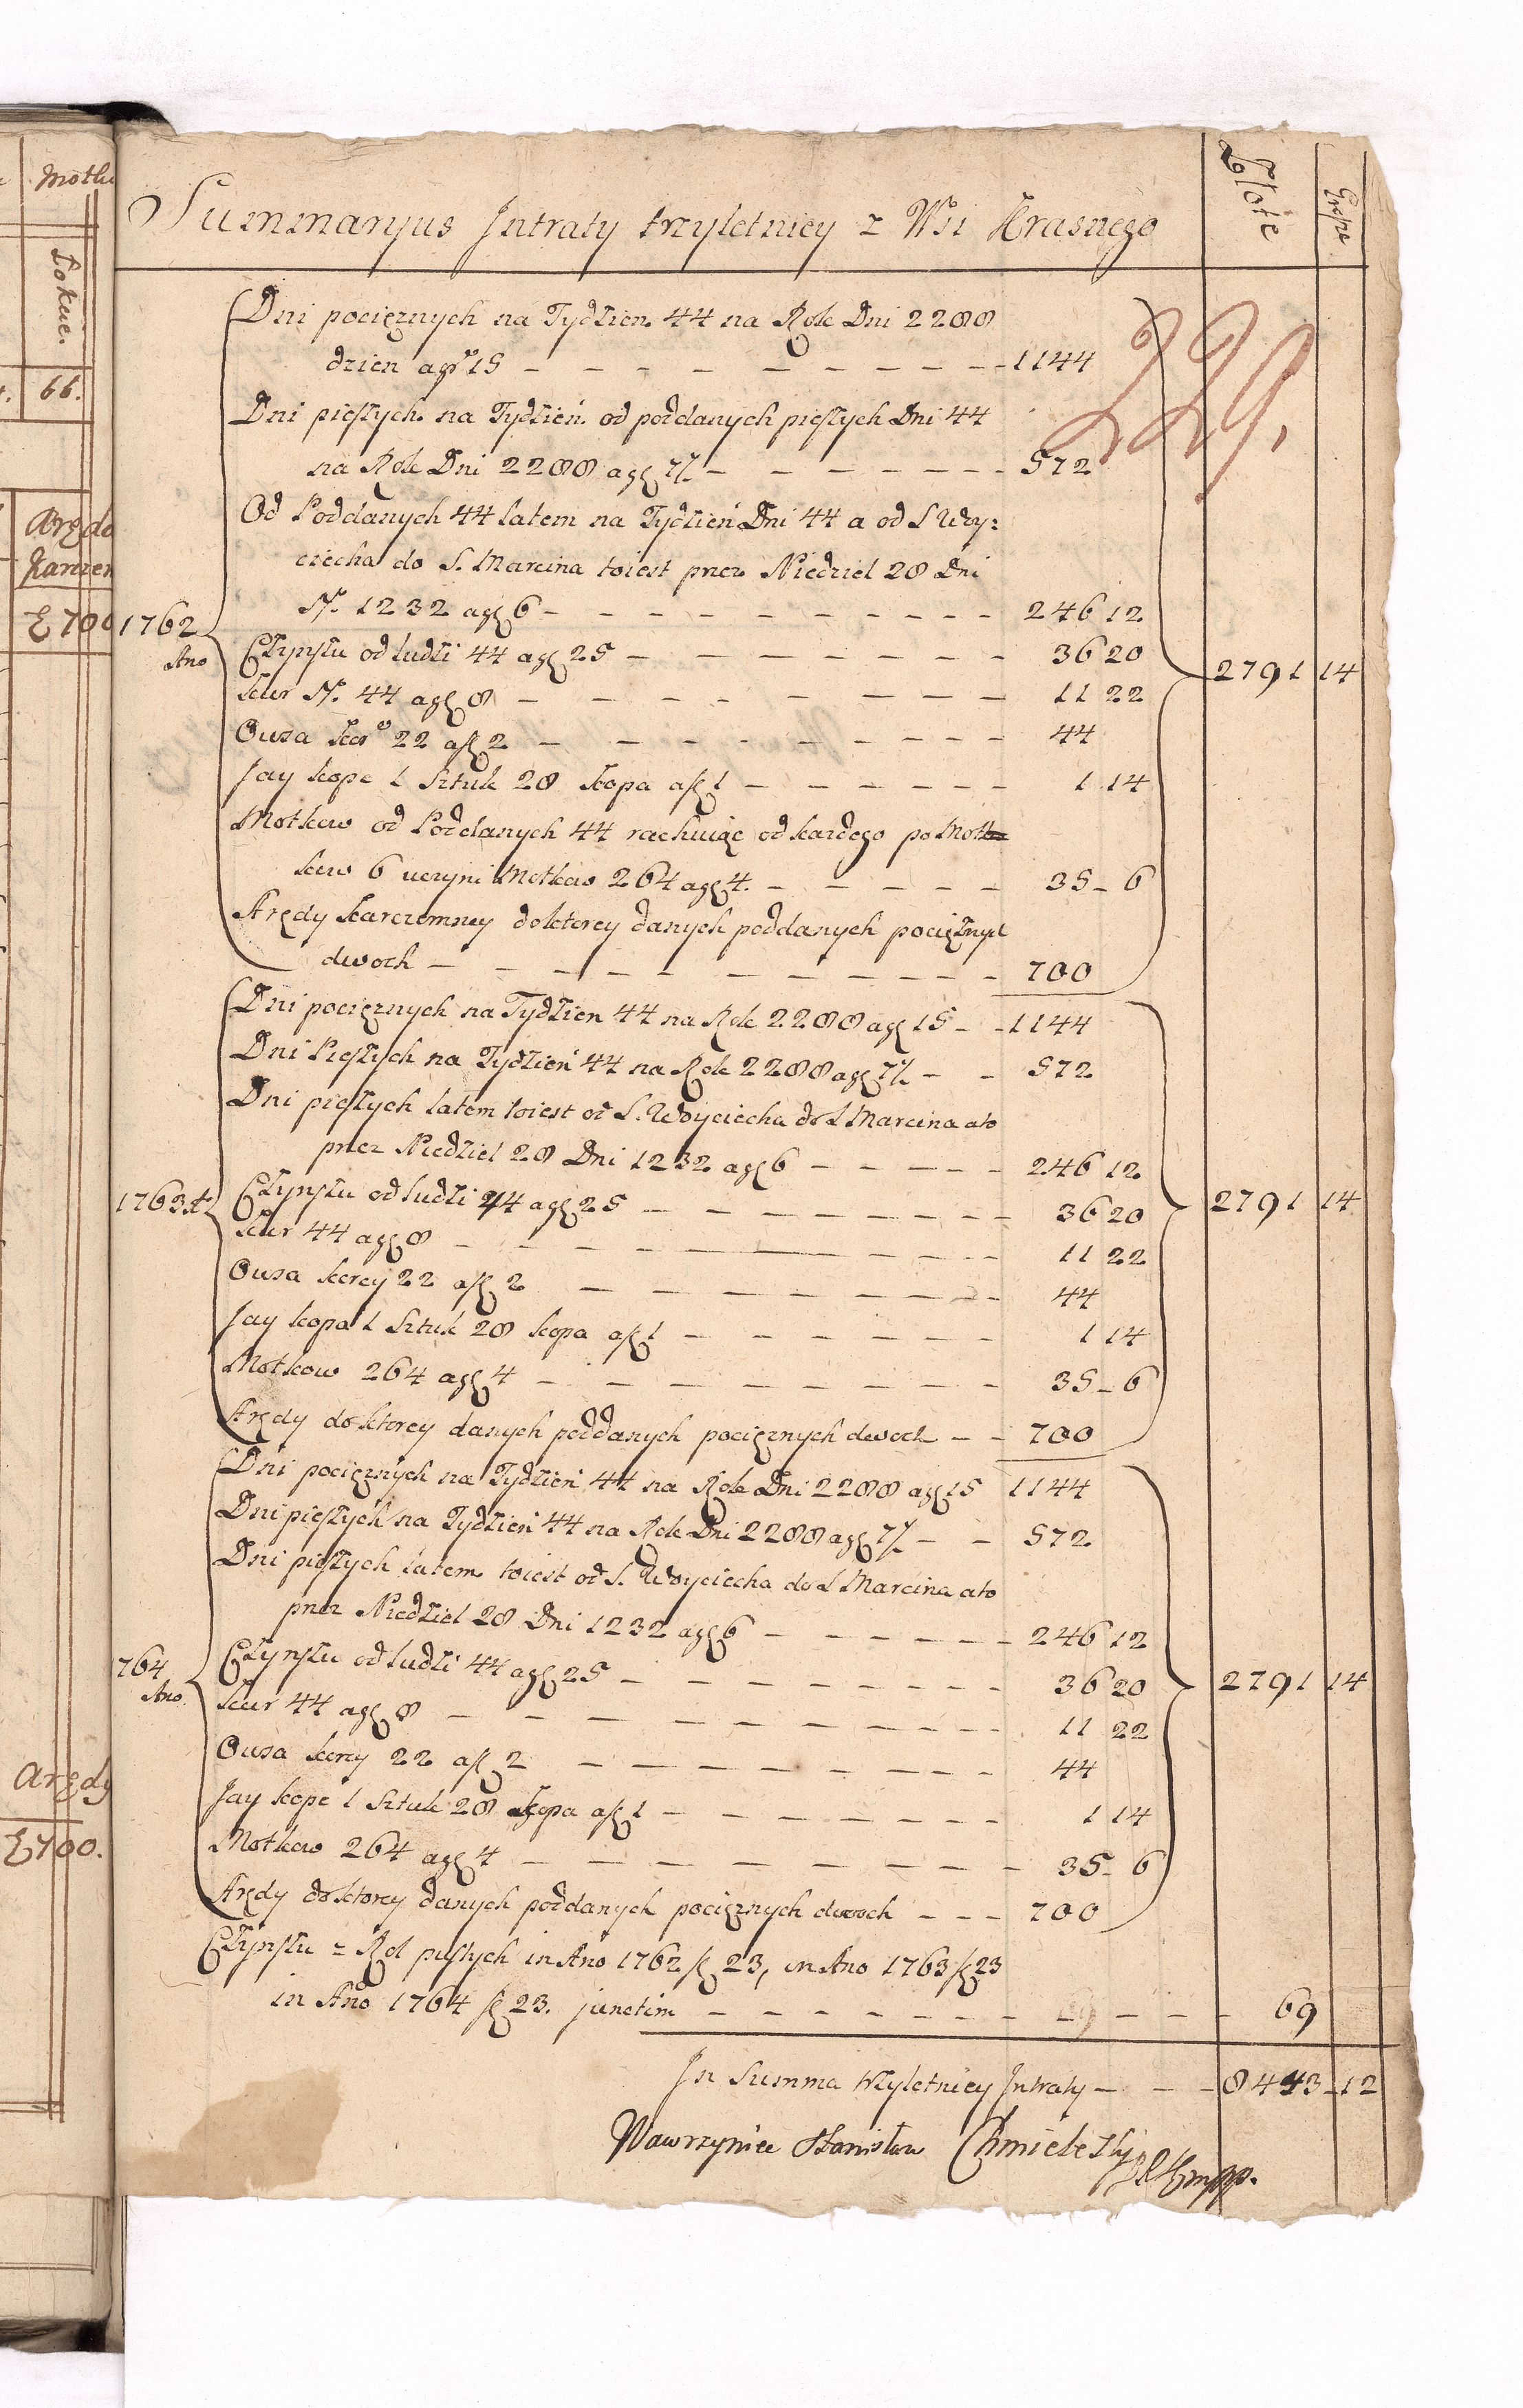 Summaryus Jntraty trzyletniey z Wsi Krasnego
Złote
Grosze
229.
Dni pocięznych na Tydzien 44 na Rok Dni 2288
dzien a gr 15 — 1144
Dni pieszych na Tydzień od poddanych pieszych Dni 44
na Rok Dni 2288 a gr 7½ — 572
Od Poddanych 44 latem na Tydzień Dni 44 a od S Woy:
ciecha do S. Marcina toiest przez Niedziel 28 Dni
Nº. 1232 a gr 6 — 246 12
1762
Ano
Czynszu od ludzi 44 a gr 25 — 36 20
2791 14
Kur Nº. 44 a gr 8 — 11 22
Owsa kor 22 a zł 2 — 44
Jay kope 1 Sztuk 28 kopa a zł 1 — 1 14
Motkow od Poddanych 44 rachuiąc od kazdego po Mot
kow 6 uczyni Motkow 264 a gr 4. — 35 - 6
Arędy karczemney do ktorey danych poddanych pociężnych
dwoch — 700
Dni pocięznych na Tydzien 44 na Rok 2288 a gr 15 — 1144
Dni Pieszych na Tydzień 44 na Rok 2288 a gr 7½ — 572
Dni pieszych latem toiest od S. Woyciecha do S Marcina a to
przez Niedziel 28 Dni 1232 a gr 6 — 246 12
1763 A
Czynszu od ludzi 44 a gr 25 — 36 20
2791 14
Kur 44 a gr 8 — 11 22
Owsa korcy 22 a zł 2 — 44
Jay kopa 1 Sztuk 28 kopa a zł 1 — 1 14
Motkow 264 a gr 4 — 35 - 6
Arędy do ktorey danych poddanych pocięznych dwoch — 700
Dni pocięznych na Tydzień 44 na Rok Dni 2288 a gr 15 1144
Dni pieszych na Tydzień 44 na Rok Dni 2288 a gr 7½ — 572
Dni pieszych latem toiest od S. Woyciecha do S Marcina a to
przez Niedziel 28 Dni 1232 a gr 6 — 246 12
764
Ano
Czynszu od ludzi 44 a gr 25 — 36 20
2791 14
Kur 44 a gr 8 — 11 22
Owsa korcy 22 a zł 2 — 44
Jay kope 1 Sztuk 28 kopa a zł 1 — 1 14
Motkow 264 a gr 4 — 35 - 6
Arędy do ktorey danych poddanych pocięznych dwoch — 700
Czynszu z Rol pustych in Ano 1762 zł 23, in Ano 1763 zł 23
in Ano 1764 zł 23. junctim — 69 — 69
Jn Summa trzyletniey Jntraty — 8443 - 12
Wawrzyniec Stanisław Chmieleski
Motk
Łokue.
66.
Aręda
Karczem
700
Arędy
700.